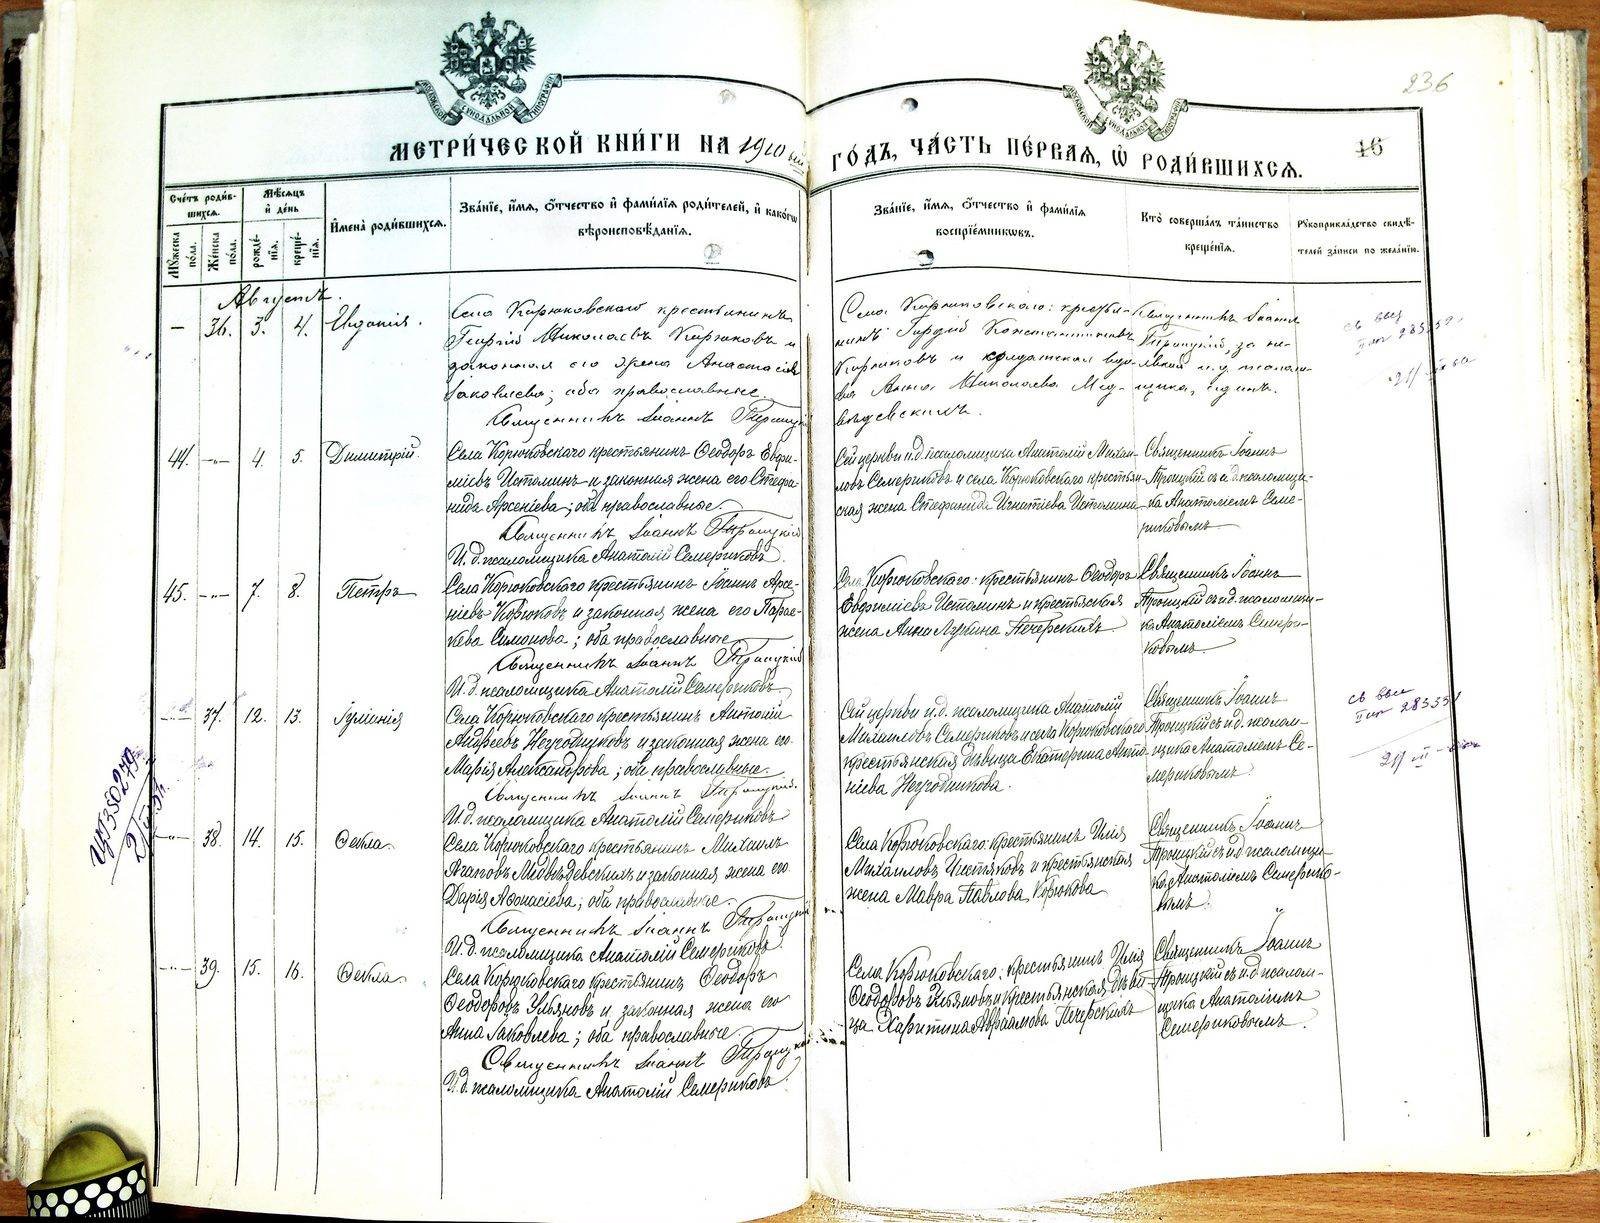 236
МОСКОВСКОЙ СѴНОДАЛЬНОЙ ТИПОГРАФІИ
МОСКОВСКОЙ СѴНОДАЛЬНОЙ ТИПОГРАФІИ
МЕТРИ́ЧЕСКОЙ КНИ́ГИ НА 1910 ГО́ДЪ, ЧА́СТЬ ПЕ́РВАЯ, Ѡ҆ РОДИ́ВШИХСЯ.
16
Сче́тъ роди́в-
шихся.
Мꙋ́жеска
по́ла.
Же́нска
по́ла.
Мѣ́сяцъ
и҆ де́нь
рожде́-
нїя.
креще́-
нїя.
И҆мена̀ роди́вшихся.
Зва́нїе, и҆́мя, ѻ҆́тчество и҆ фами́лїя роди́телей, и҆ како́гѡ
вѣроисповѣ́данїя.
Зва́нїе, и҆́мя, ѻ҆́тчество и҆ фами́лїя
воспрїе́мникѡвъ.
Кто̀ соверша́лъ та́инство
креще́нїя.
Рꙋкоприкла́дство свидѣ́-
телей за́писи по жела́нїю.
Августъ.
— 36. 3. 4.
Села Корюковскаго крестьянинъ
Георгій Николаевъ Корюковъ и
законная его жена Анастасія
Іаковлева; оба православные.
Священникъ Іоаннъ Троицкій
Села Корюковскаго: крестья-
нинъ Гордій Константиновъ
Корюковъ и солдатская вдо-
ва Анна Николаева Мед-
вѣдевскихъ.
Священникъ Іоаннъ
Троицкій, за не-
явкой и. д. псалом-
щика, одинъ.
44. —"— 4. 5. Димитрій.
Села Корюковскаго крестьянинъ Ѳеодоръ Евфи-
міевъ Истоминъ и законная жена его Стефа-
нида Арсеніева; оба православные.
Священникъ Іоаннъ Троицкій
И. д. псаломщика Анатолій Семериковъ
Сей церкви и. д. псаломщика Анатолій Михаи-
ловъ Семериковъ и села Корюковскаго крестьян-
ская жена Стефанида Игнатіева Истомина
Священникъ Іоаннъ
Троицкій съ и. д. псаломщи-
ка Анатоліемъ Семе-
риковымъ
45. —"— 7. 8. Петръ
Села Корюковскаго крестьянинъ Іоаннъ Арсе-
ніевъ Корюковъ и законная жена его Парас-
кева Симонова; оба православные
Священникъ Іоаннъ Троицкій
И. д. псаломщика Анатолій Семериковъ
Села Корюковскаго: крестьянинъ Ѳеодоръ
Евфиміевъ Истоминъ и крестьянская
жена Анна Лукина Печерскихъ
Священникъ Іоаннъ
Троицкій съ и. д. псаломщи-
ка Анатоліемъ Семери-
ковымъ
—"— 37. 12. 13. Іуліанія
Села Корюковскаго крестьянинъ Антоній
Андреевъ Негодниковъ и законная жена его
Марія Александрова; оба православные.
Священникъ Іоаннъ Троицкій.
И. д. псаломщика Анатолій Семериковъ
Сей церкви и. д. псаломщика Анатолій
Михаиловъ Семериковъ и села Корюковскаго
крестьянская дѣвица Екатерина Анто-
ніева Негодникова.
Священникъ Іоаннъ
Троицкій съ и. д. псалом-
щика Анатоліемъ Се-
мериковымъ
—"— 38. 14. 15. Ѳекла
Села Корюковскаго крестьянинъ Михаилъ
Агаповъ Медвѣдевскихъ и законная жена его
Дарія Аѳанасіева; оба православные.
Священникъ Іоаннъ Троицкій
И. д. псаломщика Анатолій Семериковъ
Села Корюковскаго: крестьянинъ Илія
Михаиловъ Чистяковъ и крестьянская
жена Мавра Павлова Корюкова
Священникъ Іоаннъ
Троицкій съ и. д. псаломщи-
ка Анатоліемъ Семерико-
вымъ.
—"— 39. 15. 16. Ѳекла
Села Корюковскаго крестьянинъ Ѳеодоръ
Ѳеодоровъ Ульяновъ и законная жена его
Анна Іаковлева; оба православные.
Священникъ Іоаннъ Троицкій
И. д. псаломщика Анатолій Семериковъ
Села Корюковскаго: крестьянинъ Илія
Ѳеодоровъ Ульяновъ и крестьянская дѣви-
ца Харитина Авраамова Печерскихъ
Священникъ Іоаннъ
Троицкій съ и. д. псалом-
щика Анатоліемъ
Семериковымъ.